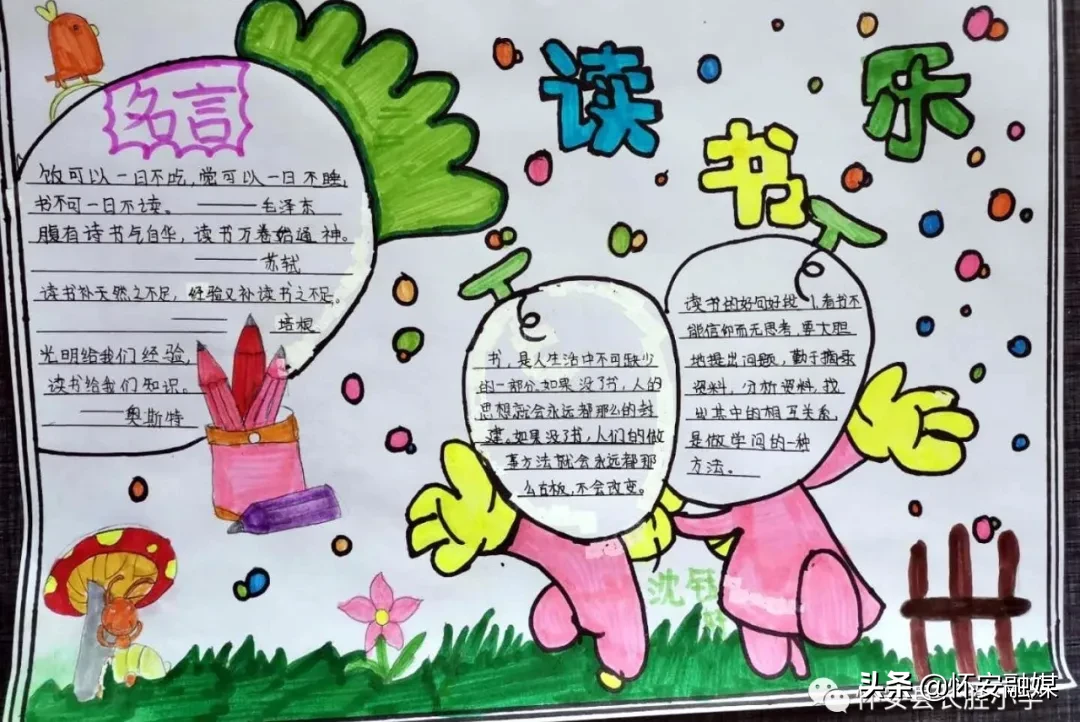 读书乐
名言
饭可以一日不吃,觉可以一日不睡,
书不可一日不读。——毛泽东
腹有诗书气自华,读书万卷始通神。
——苏轼
读书补天然之不足,经验又补读书之不足。
——培根
光明给我们经验,
读书给我们知识。
——奥斯特
书,是人生活中不可缺少
的一部份,如果没了书,人的
思想就会永远都那么的封
建。如果没了书,人们的做
事方法就会永远都那
么古板,不会改变。
读书的好句好段 1.看书不
能信仰而无思考,要大胆
地提出问题,勤于摘录
资料,分析资料,找
出其中的相互关系,
是做学问的一种
方法。
沈钰
头条@怀安融媒
怀安县长胜小学